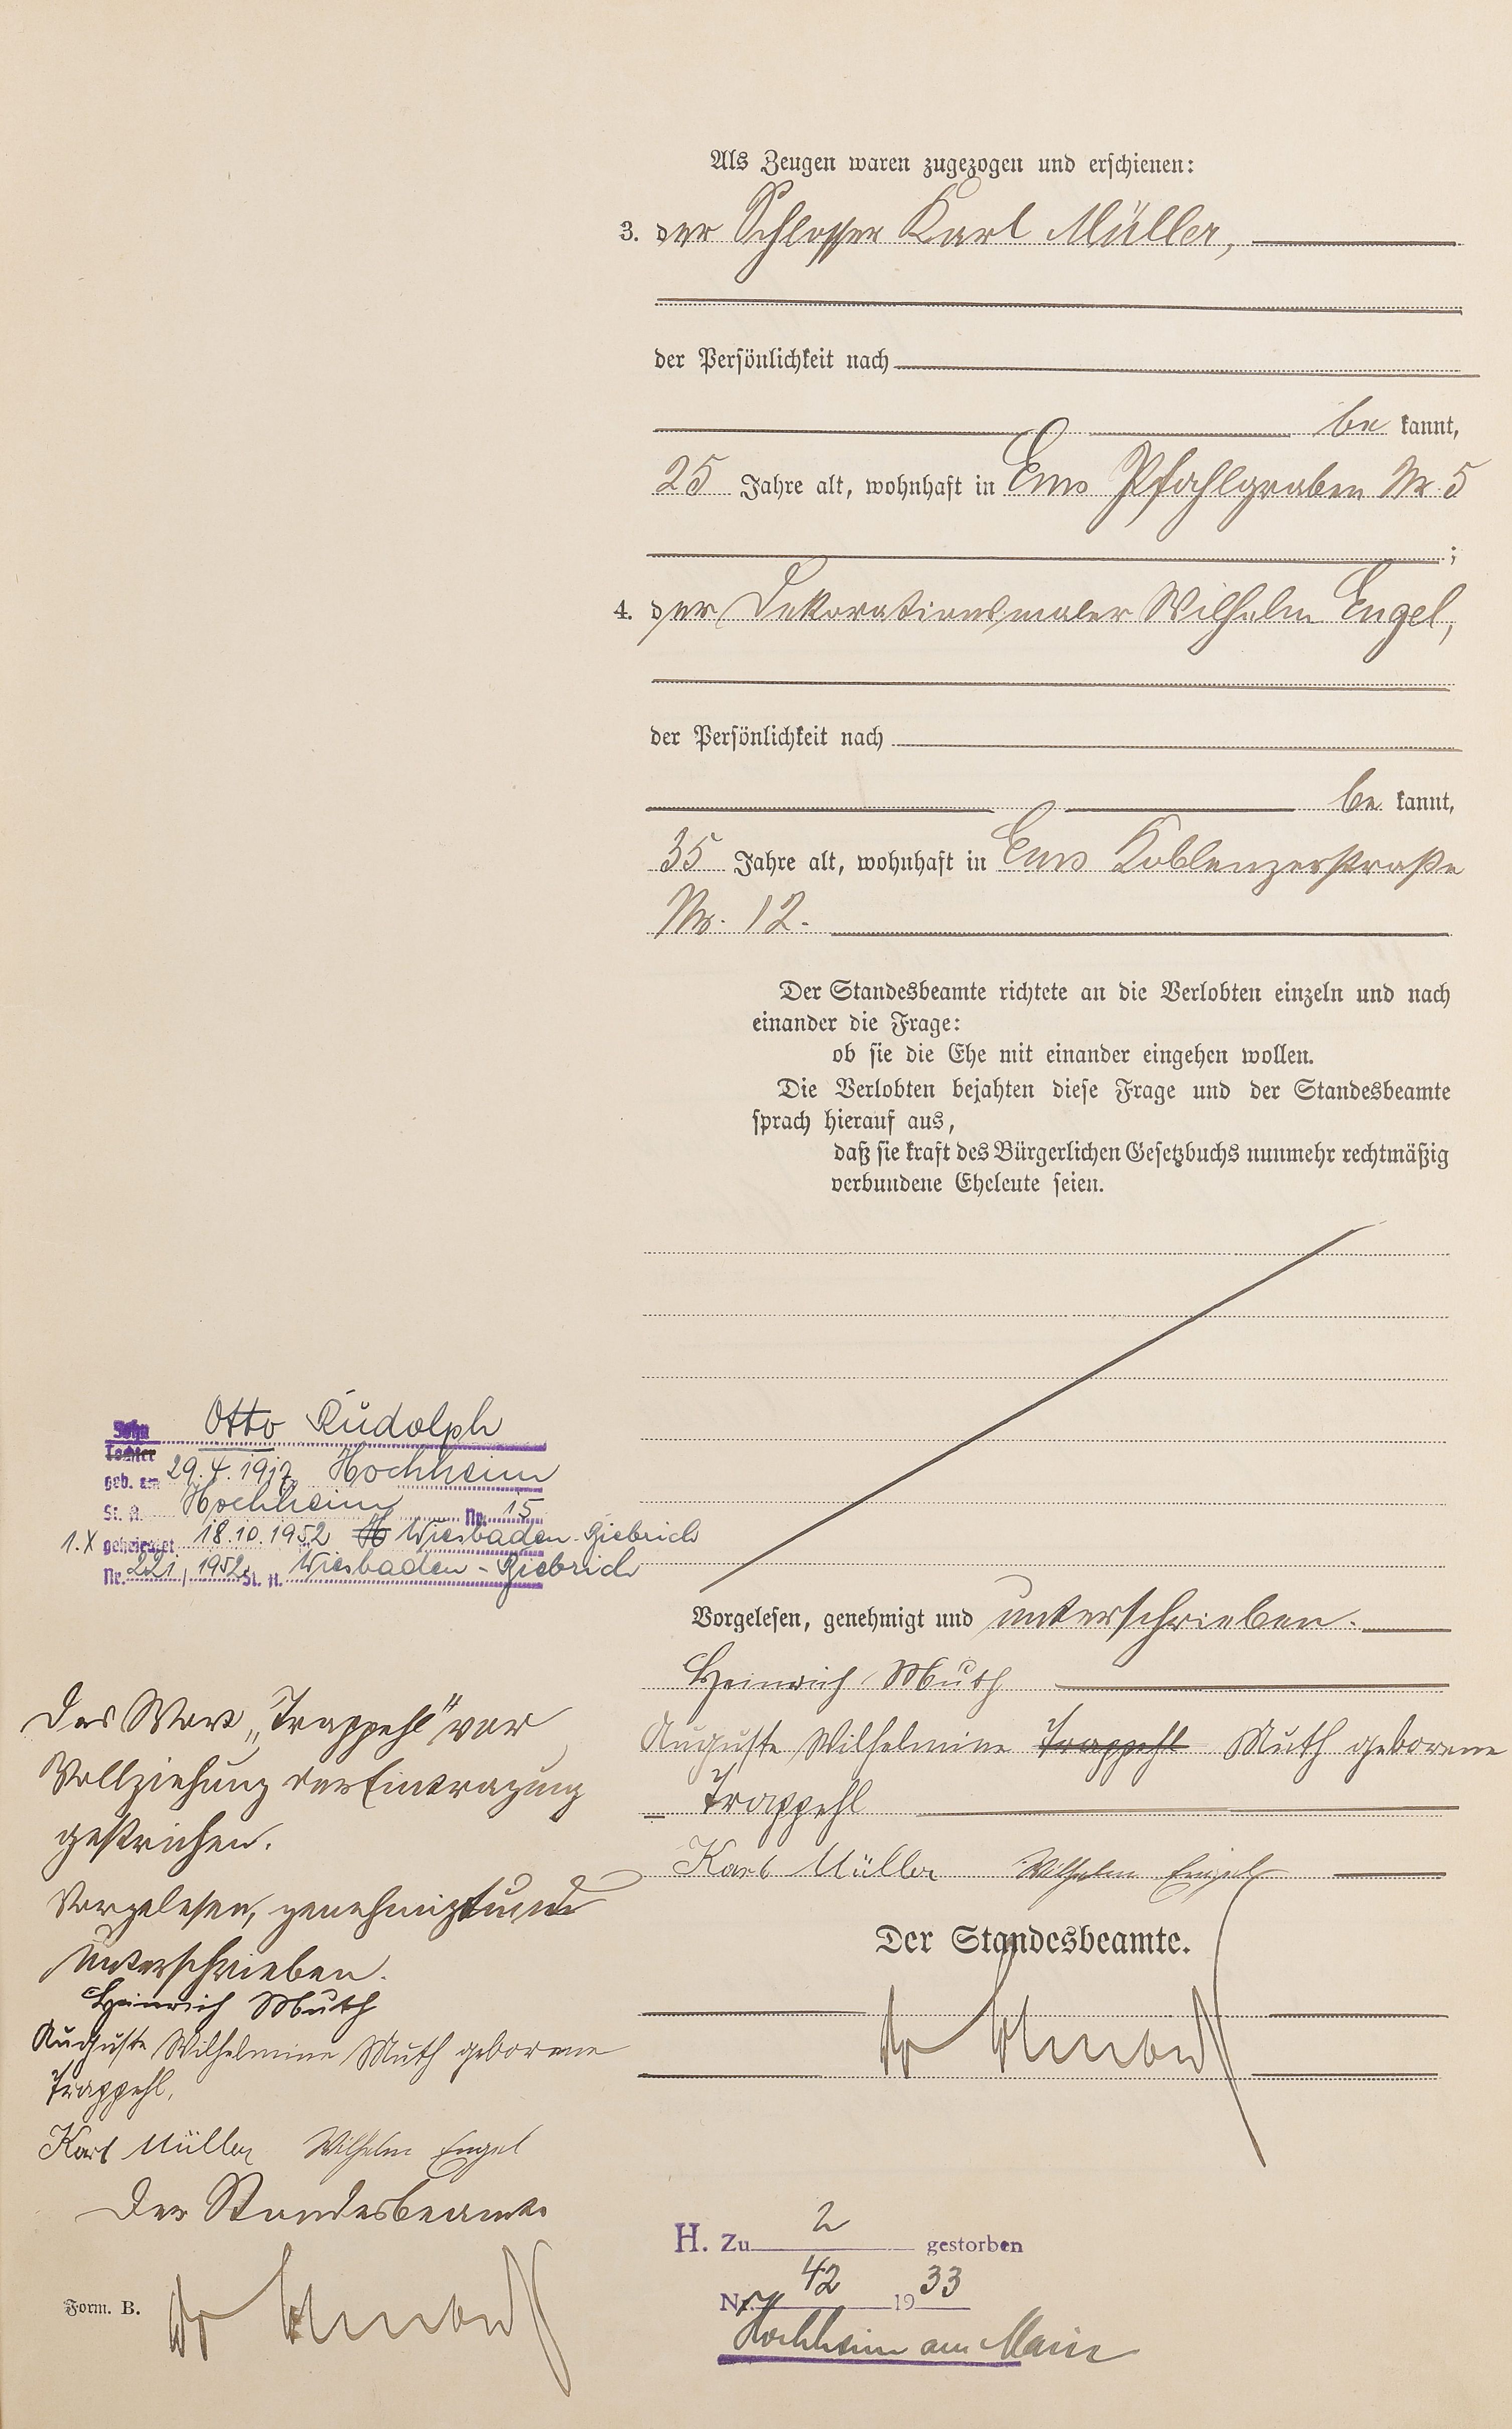 Als Zeugen waren zugezogen und erschienen:
3. der Schlosser Karl Müller,
der Persönlichkeit nach
be kannt,
25 Jahre alt, wohnhaft in Ems Pfahlgraben Nr. 5
;
4. der Dekorationsmaler Wilhelm Engel,
der Persönlichkeit nach
be kannt,
35 Jahre alt, wohnhaft in Ems Koblenzerstraße
Nr. 12.
Der Standesbeamte richtete an die Verlobten einzeln und nach
einander die Frage:
ob sie die Ehe mit einander eingehen wollen.
Die Verlobten bejahten diese Frage und der Standesbeamte
sprach hierauf aus,
daß sie kraft des Bürgerlichen Gesetzbuchs nunmehr rechtmäßig
verbundene Eheleute seien.
Vorgelesen, genehmigt und unterschrieben.
Heinrich Muth
Auguste Wilhelmine Trappehl Muth geborene
Trappehl
Karl Müller Wilhelm Engel
Der Standesbeamte.
Sohn Otto Rudolph
Tochter
geb. am 29.4.1917 Hochheim
St. A. Hochheim Nr. 15
1.X geheiratet 18.10.1952 Wiesbaden-Biebrich
Nr. 221 / 1952 St. A. Wiesbaden-Biebrich
Das Wort „Trappehl" vor
Vollziehung der Eintragung
gestrichen.
Vorgelesen, genehmigt und
unterschrieben.
Heinrich Muth
Auguste Wilhelmine Muth geborene
Trappehl.
Karl Müller Wilhelm Engel
Der Standesbeamte
Form. B.
H. Zu 2 gestorben
Nr. 42 1933
Hochheim am Main